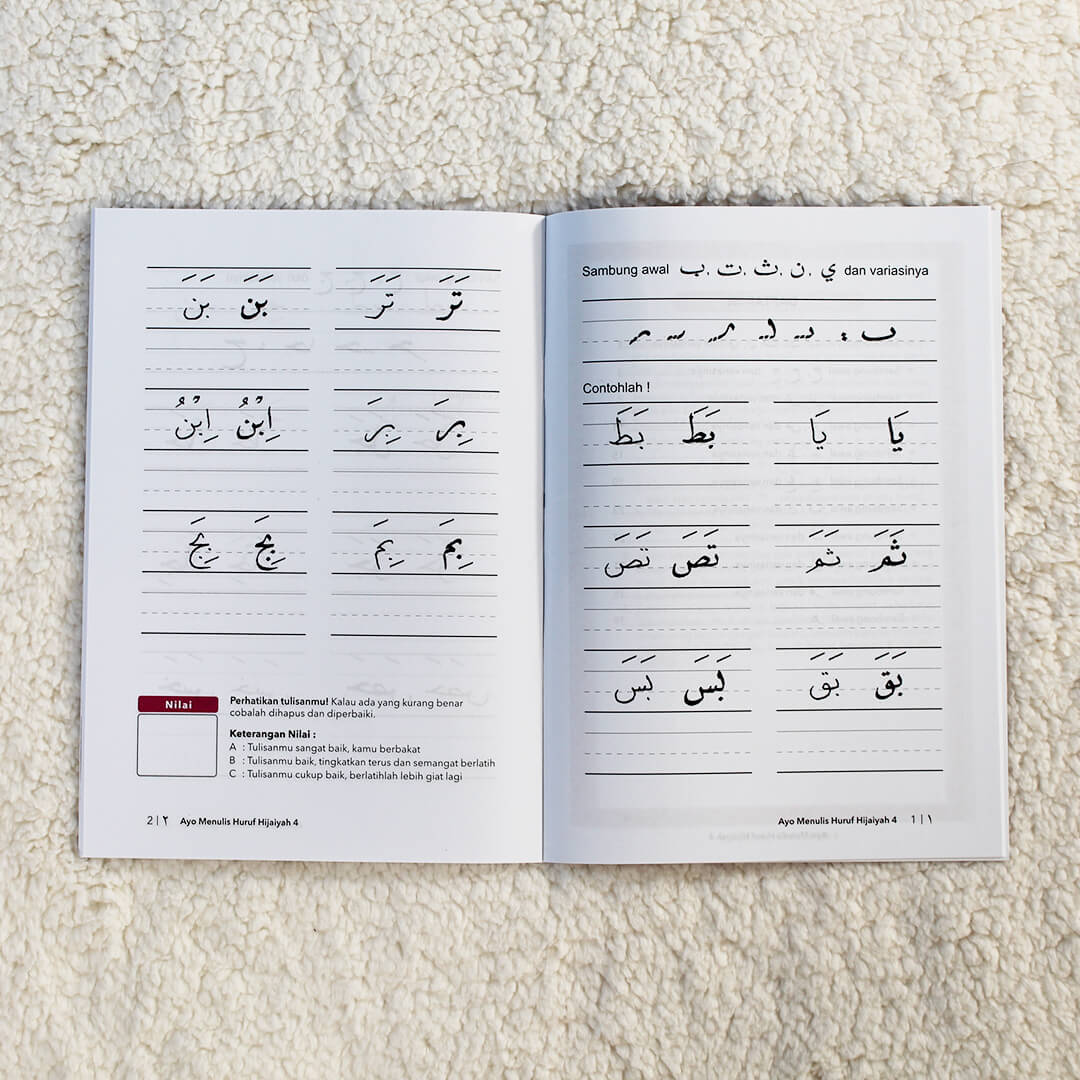 Sambung awal ب, ت, ث, ن, ي dan variasinya
Contohlah !
يَا يَا بَطَ بَطَ
ثَمَ ثَمَ تَصَ تَصَ
بَقَ بَقَ بَسَ بَسَ
Ayo Menulis Huruf Hijaiyah 4 1 | ١
تَرَ تَرَ بَنَ بَنَ
بِرَ بِرَ اِبْنُ اِبْنُ
بِمَ بِمَ بِجَ بِجَ
Nilai
Perhatikan tulisanmu! Kalau ada yang kurang benar
cobalah dihapus dan diperbaiki.
Keterangan Nilai :
A : Tulisanmu sangat baik, kamu berbakat
B : Tulisanmu baik, tingkatkan terus dan semangat berlatih
C : Tulisanmu cukup baik, berlatihlah lebih giat lagi
2 | ٢ Ayo Menulis Huruf Hijaiyah 4